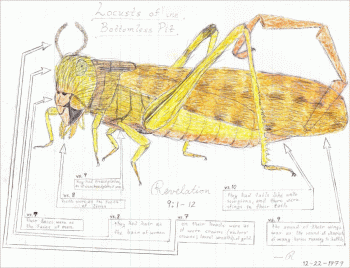 Locusts of
Bottomless Pit.
vs. 9
They had breastplates
vs. 8
Teeth were as the teeth
of lions
Revelation
9:1-12
vs. 10
They had tails like unto
scorpions, and there were
stings in their tails
vs. 7
Their faces were as
the faces of men.
vs. 8
They had hair as
the hair of women
vs. 7
on their heads were as
it were crowns
crowns like gold.
vs. 9
The sound of their wings
was as the sound of chariots
of many horses running to battle
12-22-1979